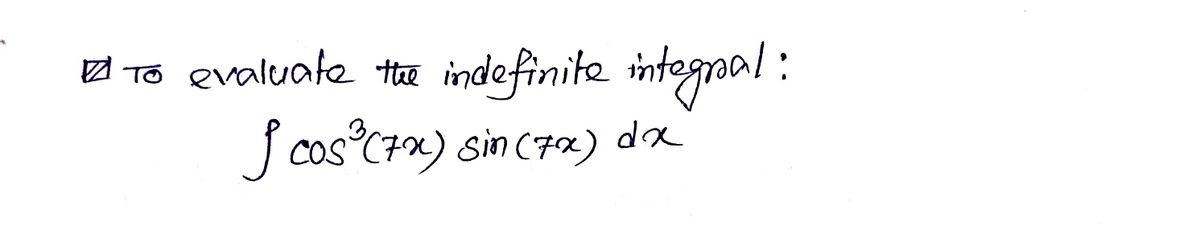 To evaluate the indefinite integral :
∫ cos³(7x) sin(7x) dx